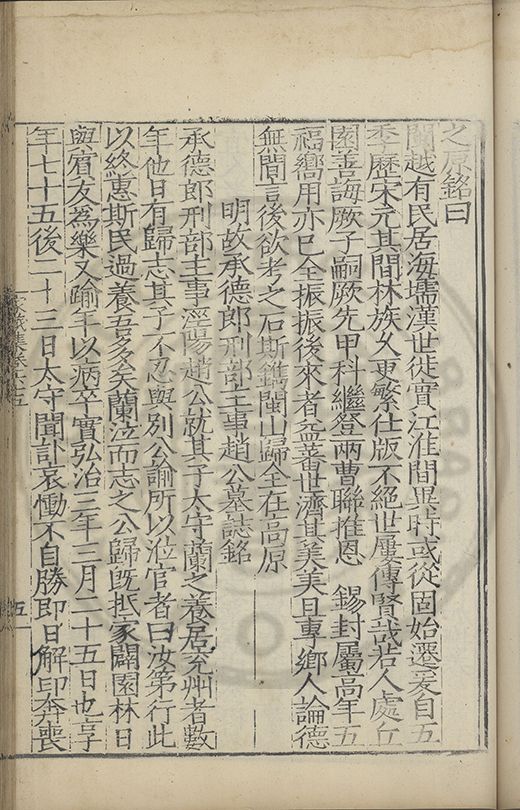 之原銘曰
閩越有民居海壖漢世徙實江淮間異時或從固始還爰自五
季歷宋元其間林族乆更繁仕版不絕世屢傳賢哉若人處丘
園善誨厥子嗣厥先甲科繼登兩曹聯推恩　錫封屬高年五
福嚮用亦已全振振後來者益蕃世濟其美美且專鄉人論德
無間言後欲考之石斯鐫閩山歸全在高原
明故承德郎刑部主事趙公墓誌銘
承德郎刑部主事涇陽趙公就其子太守蘭之養居兖州者數
年他日有歸志其子不忍與別公諭所以涖官者曰汝第行此
以終惠斯民過養吾多矣蘭泣而志之公歸既抵家闢園林日
與賓友為樂又踰年以病卒實弘治三年三月二十五日也享
年七十五後二十三日太守聞訃哀慟不自勝即日解印奔喪
家藏集卷六十五
五